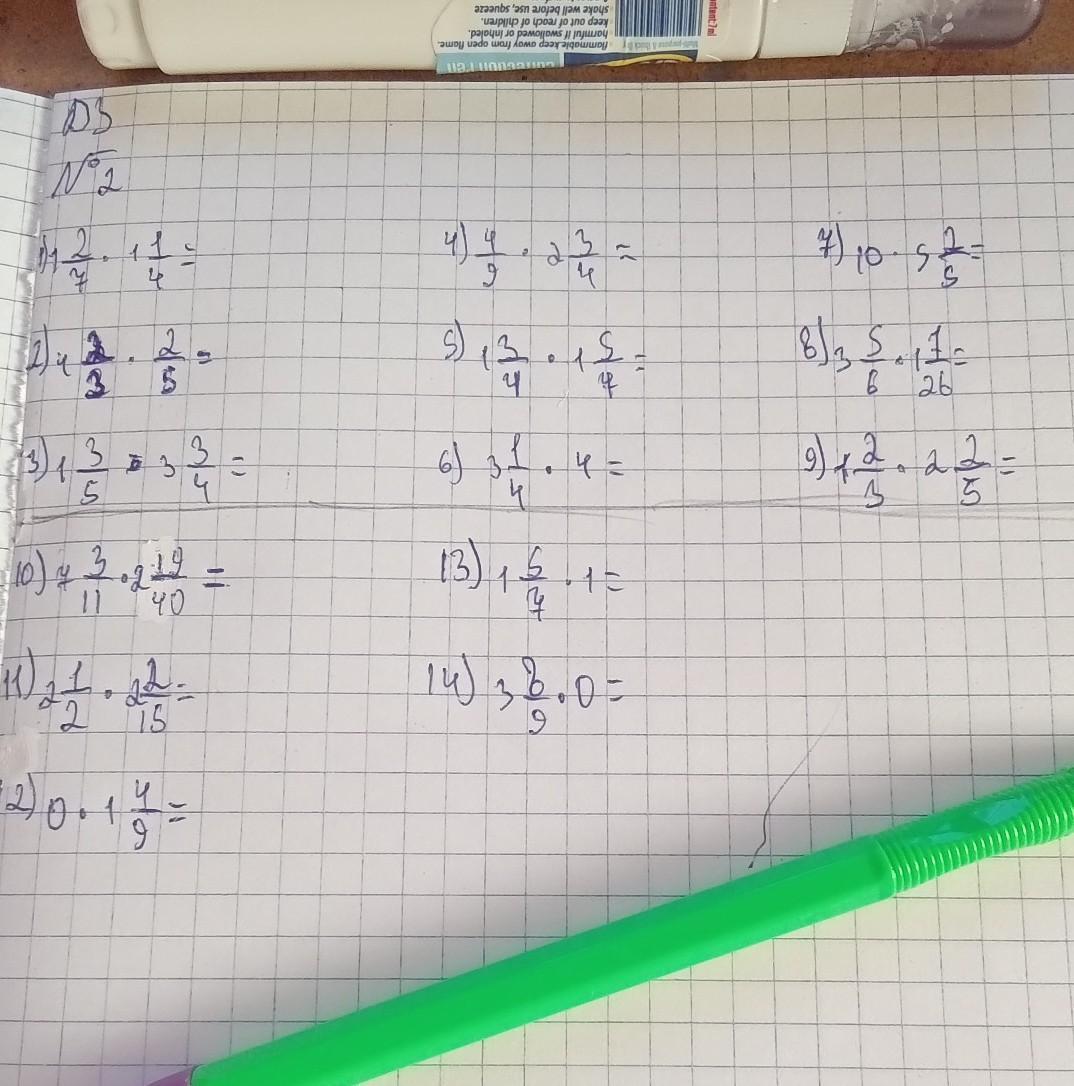 flammable.keep away from open flame.
harmful if swallowed or inhaled.
keep out of reach of children.
shake well before use, squeeze
correction Pen
ДЗ
№2
1) 1 2/7 · 1 1/4 =
4) 4/9 · 2 3/4 =
7) 10 · 5 2/5 =
2) 1 2/3 · 2/5 =
5) 1 3/4 · 1 5/7 =
8) 3 5/6 · 1 1/26 =
3) 1 3/5 · 3 3/4 =
6) 3 1/4 · 4 =
9) 1 2/3 · 2 2/5 =
10) 7 3/11 · 2 19/40 =
13) 1 5/7 · 1 =
11) 2 1/2 · 2 2/15 =
14) 3 8/9 · 0 =
12) 0 · 1 4/9 =